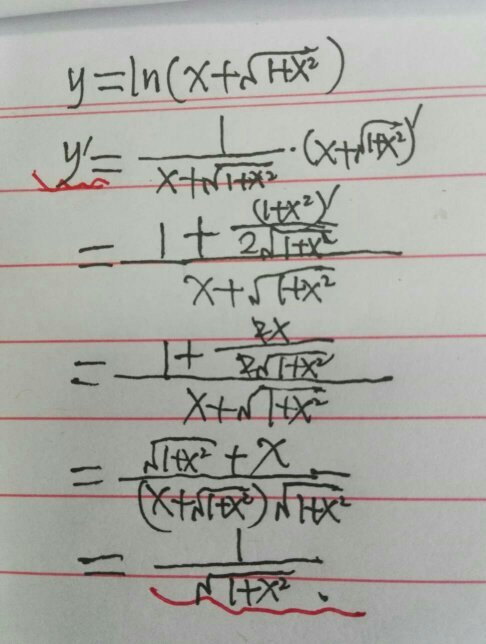 y=ln(x+√(1+x²))
y′=1/(x+√(1+x²))·(x+√(1+x²))′
=(1+(1+x²)′/(2√(1+x²)))/(x+√(1+x²))
=(1+2x/(2√(1+x²)))/(x+√(1+x²))
=(√(1+x²)+x)/((x+√(1+x²))√(1+x²))
=1/√(1+x²).